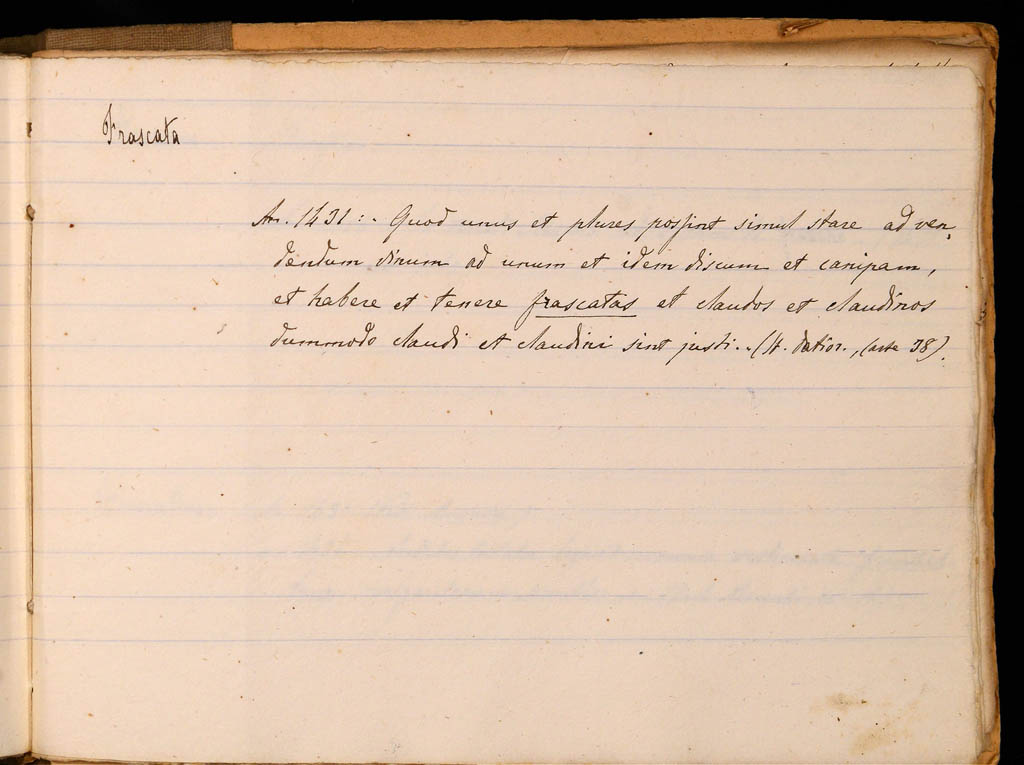 Frascata
An. 1431:- Quod unus et plures possint simul stare ad ven-
dendum vinum ad unum et idem discum et canipam,
et habere et tenere frascatas et claudos et claudinos
dummodo claudi et claudini sint justi.. (St. datior., carte 38).